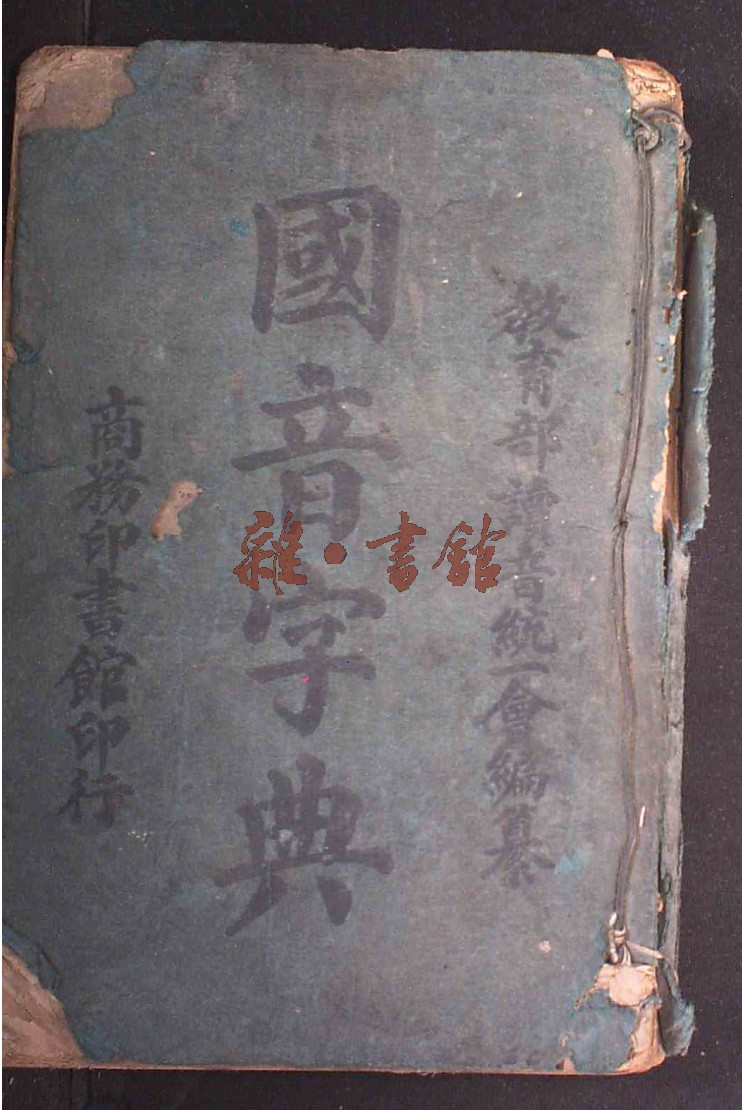 教育部讀音統一會編纂
國音字典
商務印書館印行
雜·書館